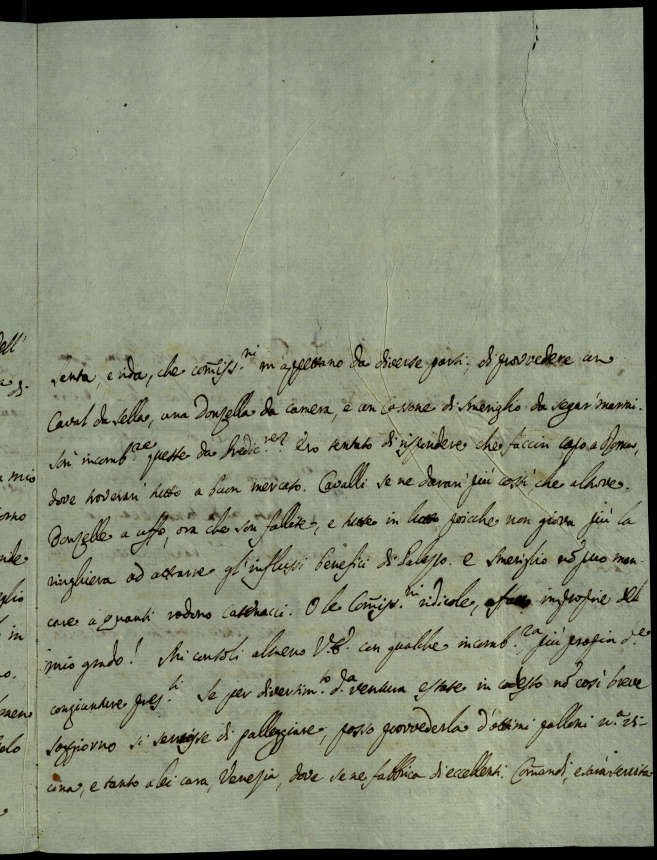 dell'
senta, e rida, che com̃iss.ni m'aspettano da diverse parti; di provvedere un
Caval da sella, una Donzella da camera, e un Cassone di smeriglio da segar marmi.
Son incomb.ze queste da Predic.re? Ero tentato di rispondere che faccin capo a Roma,
dove troveran tutto a buon mercato. Cavalli se ne davan più costì che altrove.
Donzelle a uffo, ora che son fallite, e tutte in lutto poicche non giova più la
ringhiera ad attrarre gl'influssi benefici di Palazzo. e smeriglio nõ può man-
care a quanti rodono catenacci. O le Com̃iss.ni ridicole, improprie del
mio grado! Mi consoli almeno V.E. con qualche incomb.za più propria d.e
congiunture pres.ti Se per divertim.to d.a ventura estate in codesto nõ così breve
soggiorno si servisse di palleggiare, posso provvederla d'ottimi palloni n.a vi-
cina, e tanto a lei cara, Venezia, dove se ne fabbrica di eccellenti. Comandi, e sarà servita
mio
orno
in